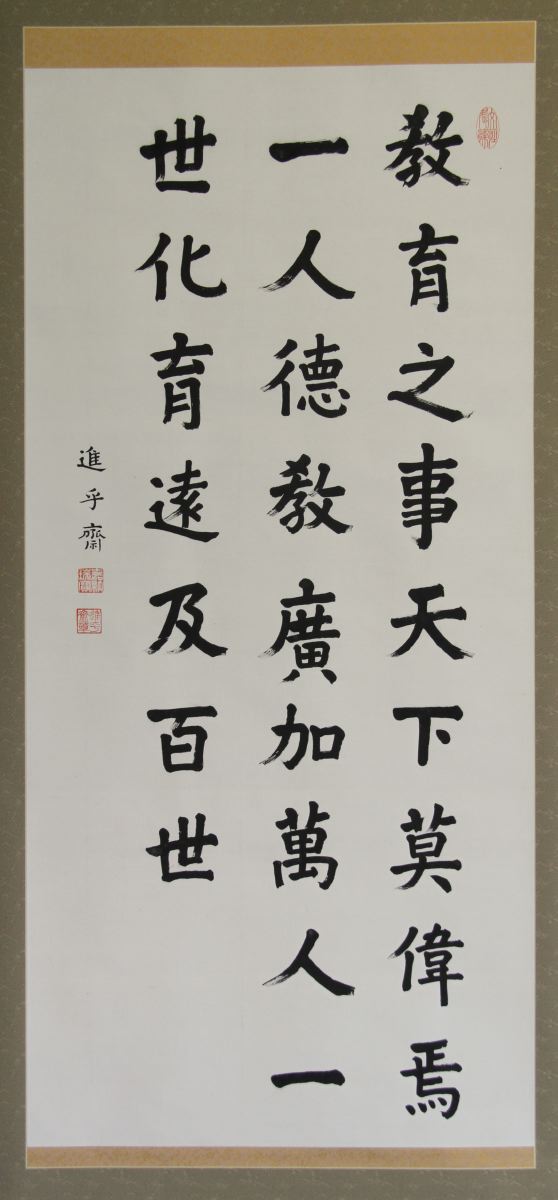 教育之事天下莫偉焉
一人德教廣加萬人一
世化育遠及百世
進乎齋